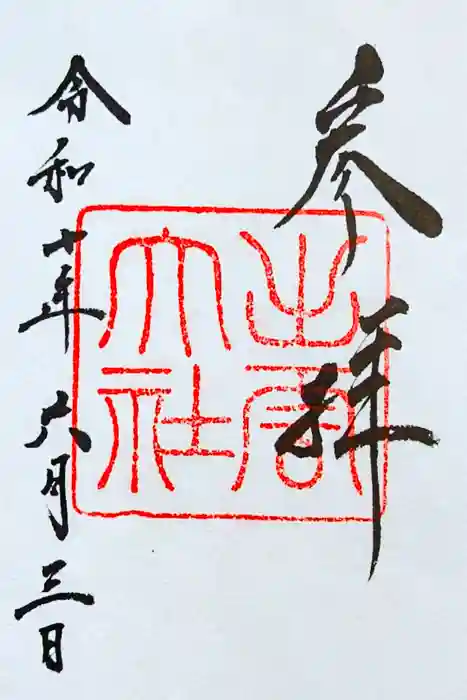 参拝
出雲
大社
令和七年六月三日